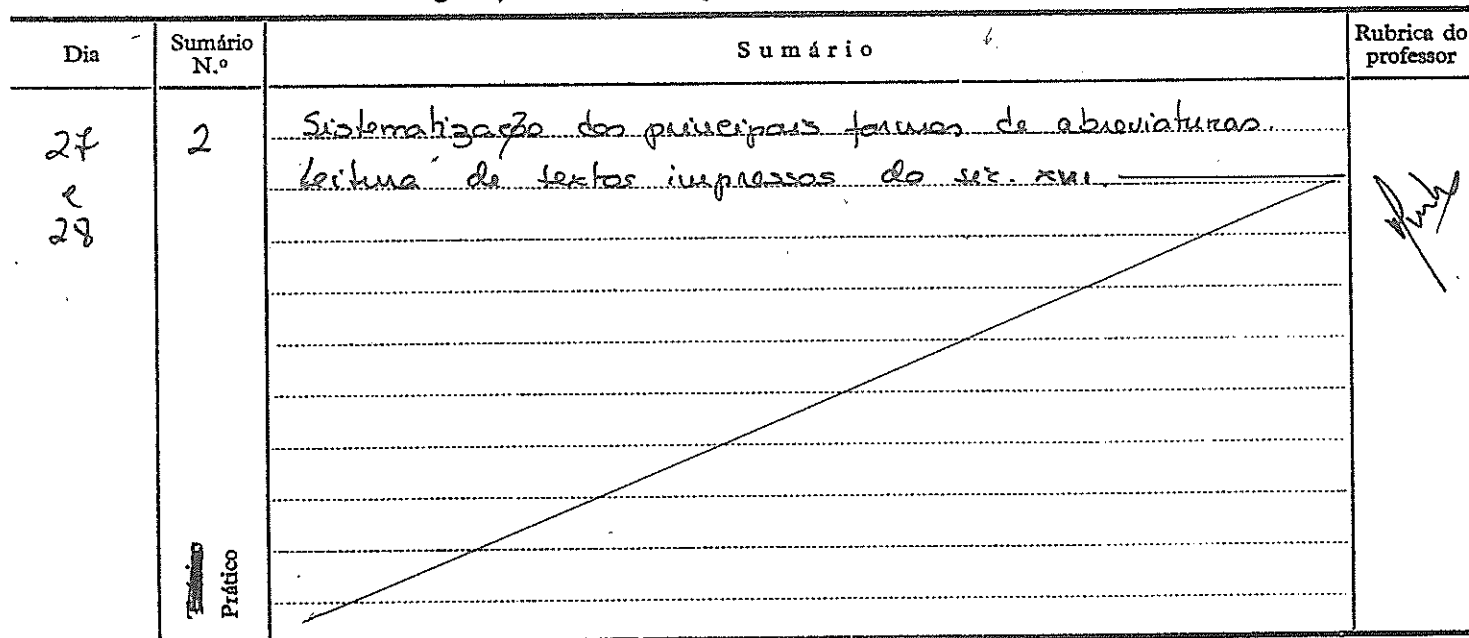 Dia
Sumário N.º
Sumário
Rubrica do professor
27 e 28
2
Sistematização das principais formas de abreviaturas.
Leitura de textos impressos do séc. XVII.
Prático